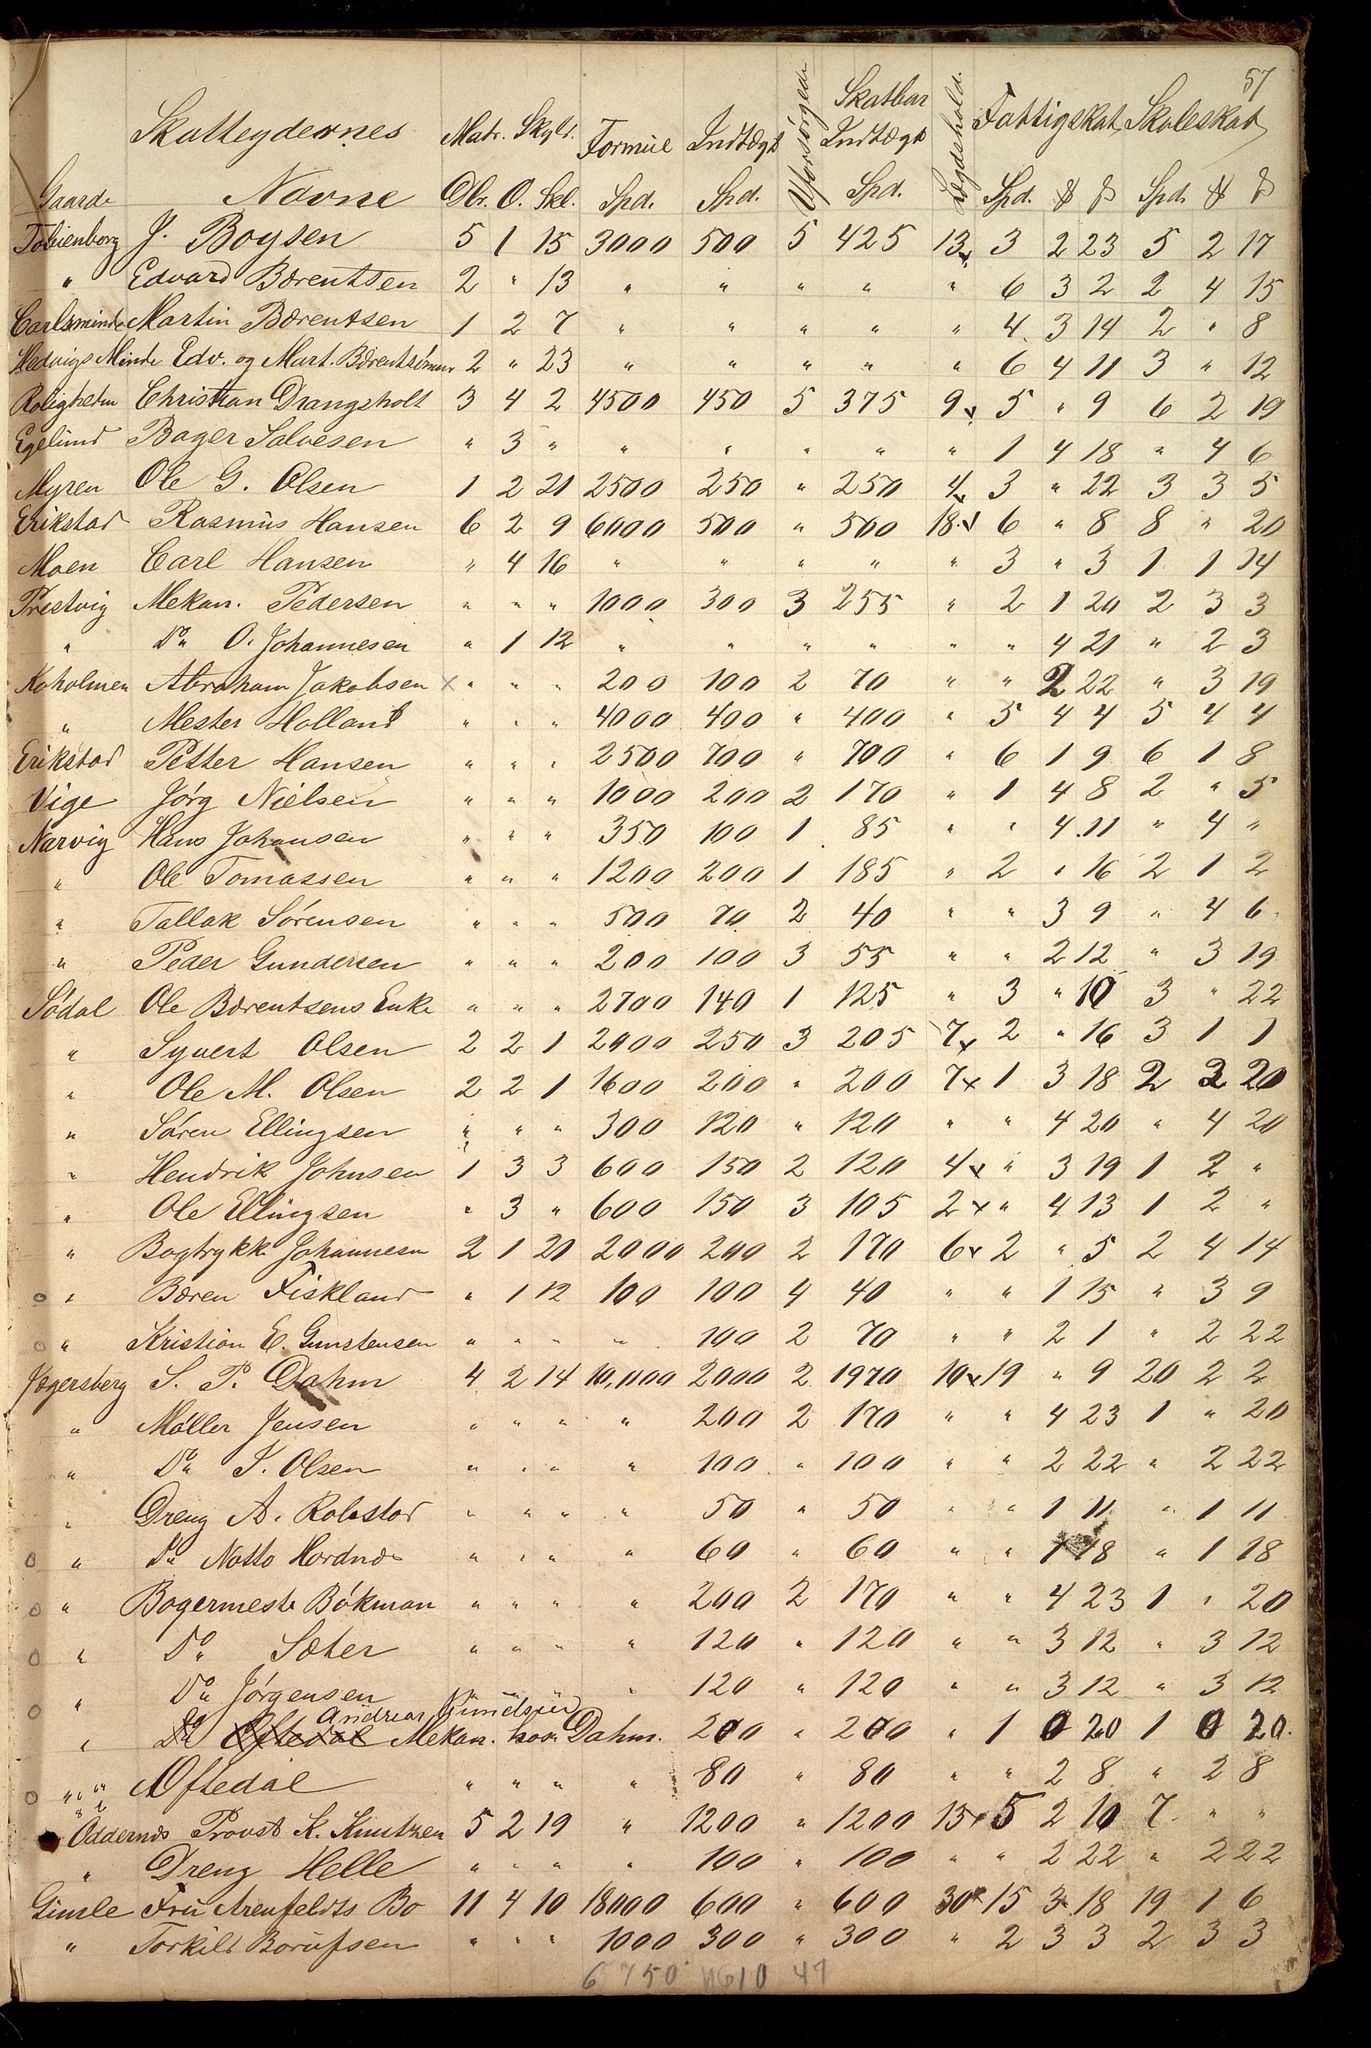 57
Skatteydernes Matr. Skyld. Formue Indtægt Uforsørgede Skatbar Indtægt Lægdshold. Fattigskat Skoleskat
Gaarde Navne Dlr. O. Skl. Spd. Spd. Spd. Spd. Spd.
Tobienborg J. Boysen 5 1 15 3000 500 5 425 13x 3 2 23 5 2 17
" Edvard Bærentsen 2 " 13 " " " " " 6 3 2 2 4 15
Carlsminde Martin Bærentsen 1 2 7 " " " " 4 3 14 2 " 8
Hedvigs Minde Edv. og Mart. Bærentsønner 2 " 23 " " " " 6 4 11 3 " 12
Roligheden Christian Drangsholt 3 4 2 4500 450 5 375 9x 5 " 9 6 2 19
Egelund Bager Salvesen " 3 " " " " " " 1 4 18 " 4 6
Myren Ole G. Olsen 1 2 21 2500 250 " 250 4x 3 " 22 3 3 5
Erikstad Rasmus Hansen 6 2 9 6000 500 " 500 18x 6 " 8 8 " 20
Moen Carl Hansen " 4 16 " " " " " 3 " 3 1 1 14
Prestvig Mekan. Pedersen " " " 1000 300 3 255 " 2 1 20 2 3 3
" Do O. Johannesen " 1 12 " " " " " " 4 21 " 2 3
Koholmen Abraham Jakobsen x " " " 200 100 2 70 " " 2 22 " 3 19
" Mester Holland " " " 4000 400 " 400 " 5 4 4 5 4 4
Erikstad Petter Hansen " " " 2500 700 " 700 " 6 1 9 6 1 8
Vige Jørg Nielsen " " " 1000 200 2 170 " 1 4 8 2 " 5
Narvig Hans Johansen " " " 350 100 1 85 " " 4 11 " 4 "
" Ole Tomassen " " " 1200 200 1 185 " 2 " 16 2 1 2
" Tallak Sørensen " " " 500 70 2 40 " " 3 9 " 4 6
" Peder Gundersen " " " 200 100 3 55 " " 2 12 " 3 19
Sødal Ole Bærentsens Enke " " " 2700 140 1 125 " 3 " 10 3 " 22
" Syvert Olsen 2 2 1 2000 250 3 205 7x 2 " 16 3 1 1
" Ole M. Olsen 2 2 1 1600 200 " 200 7x 1 3 18 2 3 20
" Søren Ellingsen " " " 300 120 " 120 " " 4 20 " 4 20
" Hendrik Johnsen 1 3 3 600 150 2 120 4x " 3 19 1 2 "
" Ole Ellingsen " 3 " 600 150 3 105 2x " 4 13 1 2 "
" Bogtrykk. Johannesen 2 1 20 2000 200 2 170 6x 2 " 5 2 4 14
o " Bæren Fiskland " 1 12 100 100 4 40 " " 1 15 " 3 9
o " Kristian E. Gunstensen " " " " 100 2 70 " " 2 1 " 2 22
Jægersberg S. P. Dahm 4 2 14 10,000 2000 2 1970 10x 19 " 9 20 2 2
" Møller Jensen " " " " 200 2 170 " " 4 23 1 " 20
" Do J. Olsen " " " " 100 " 100 " " 2 22 " 2 22
" Dreng A. Robstad " " " " 50 " 50 " " 1 11 " 1 11
o " Do Notto Hordnes " " " " 60 " 60 " " 1 18 " 1 18
o " Bagermest. Bøkman " " " " 200 2 170 " " 4 23 1 " 20
o " Do Sæter " " " " 120 " 120 " " 3 12 " 3 12
o " Do Jørgensen " 120 " 120 " " 3 12 " 3 12
Andreas Knudsen
" Do Oftedal Mekan. hos Dahm. 200 " 200 " 1 0 20 1 0 20.
o " " " Oftedal " " " " 80 " 80 " " 2 8 " 2 8
Oddernæs Provst K. Knutzen 5 2 19 " 1200 " 1200 15x 5 2 10 7 " "
" Dreng Helle " " " " 100 " 100 " " 2 22 " 2 22
Gimle Fru Arenfeldts Bo 11 4 10 18000 600 " 600 30x 15 3 18 19 1 6
" Torkild Borufsen " " " 1000 300 " 300 " 2 3 3 2 3 3
6750 11610 47